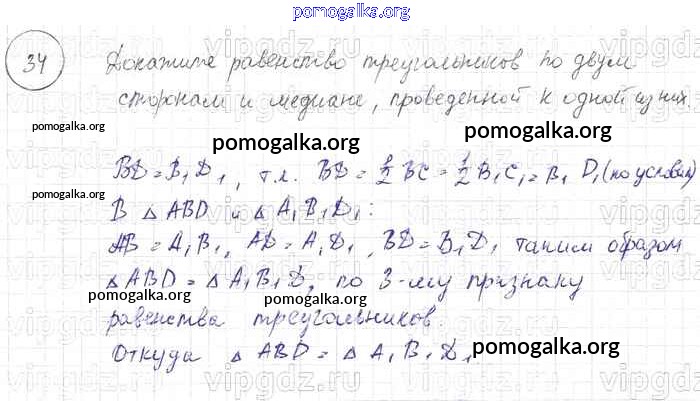 pomogalka.org
34 Докажите равенство треугольников по двум
сторонам и медиане, проведенной к одной из них.
pomogalka.org
pomogalka.org
pomogalka.org
BD = B₁D₁, т.к. BD = 1/2 BC = 1/2 B₁C₁ = B₁D₁ (по условию)
pomogalka.org
В △ ABD и △ A₁B₁D₁:
AB = A₁B₁, AD = A₁D₁, BD = B₁D₁ таким образом
△ ABD = △ A₁B₁D, по 3-му признаку
pomogalka.org
pomogalka.org
равенства треугольников.
Откуда △ ABD = △ A₁B₁D₁
pomogalka.org
vipgdz.ru